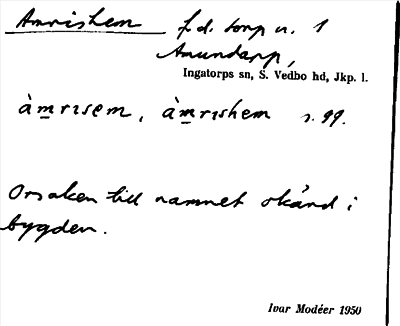 Amrishem f.d. torp u. 1
Anundarp,
Ingatorps sn, S. Vedbo hd, Jkp. l.
àmrɪsem, àmrɪshem s. 99.
Orsaken till namnet okänd i
bygden.
Ivar Modéer 1950